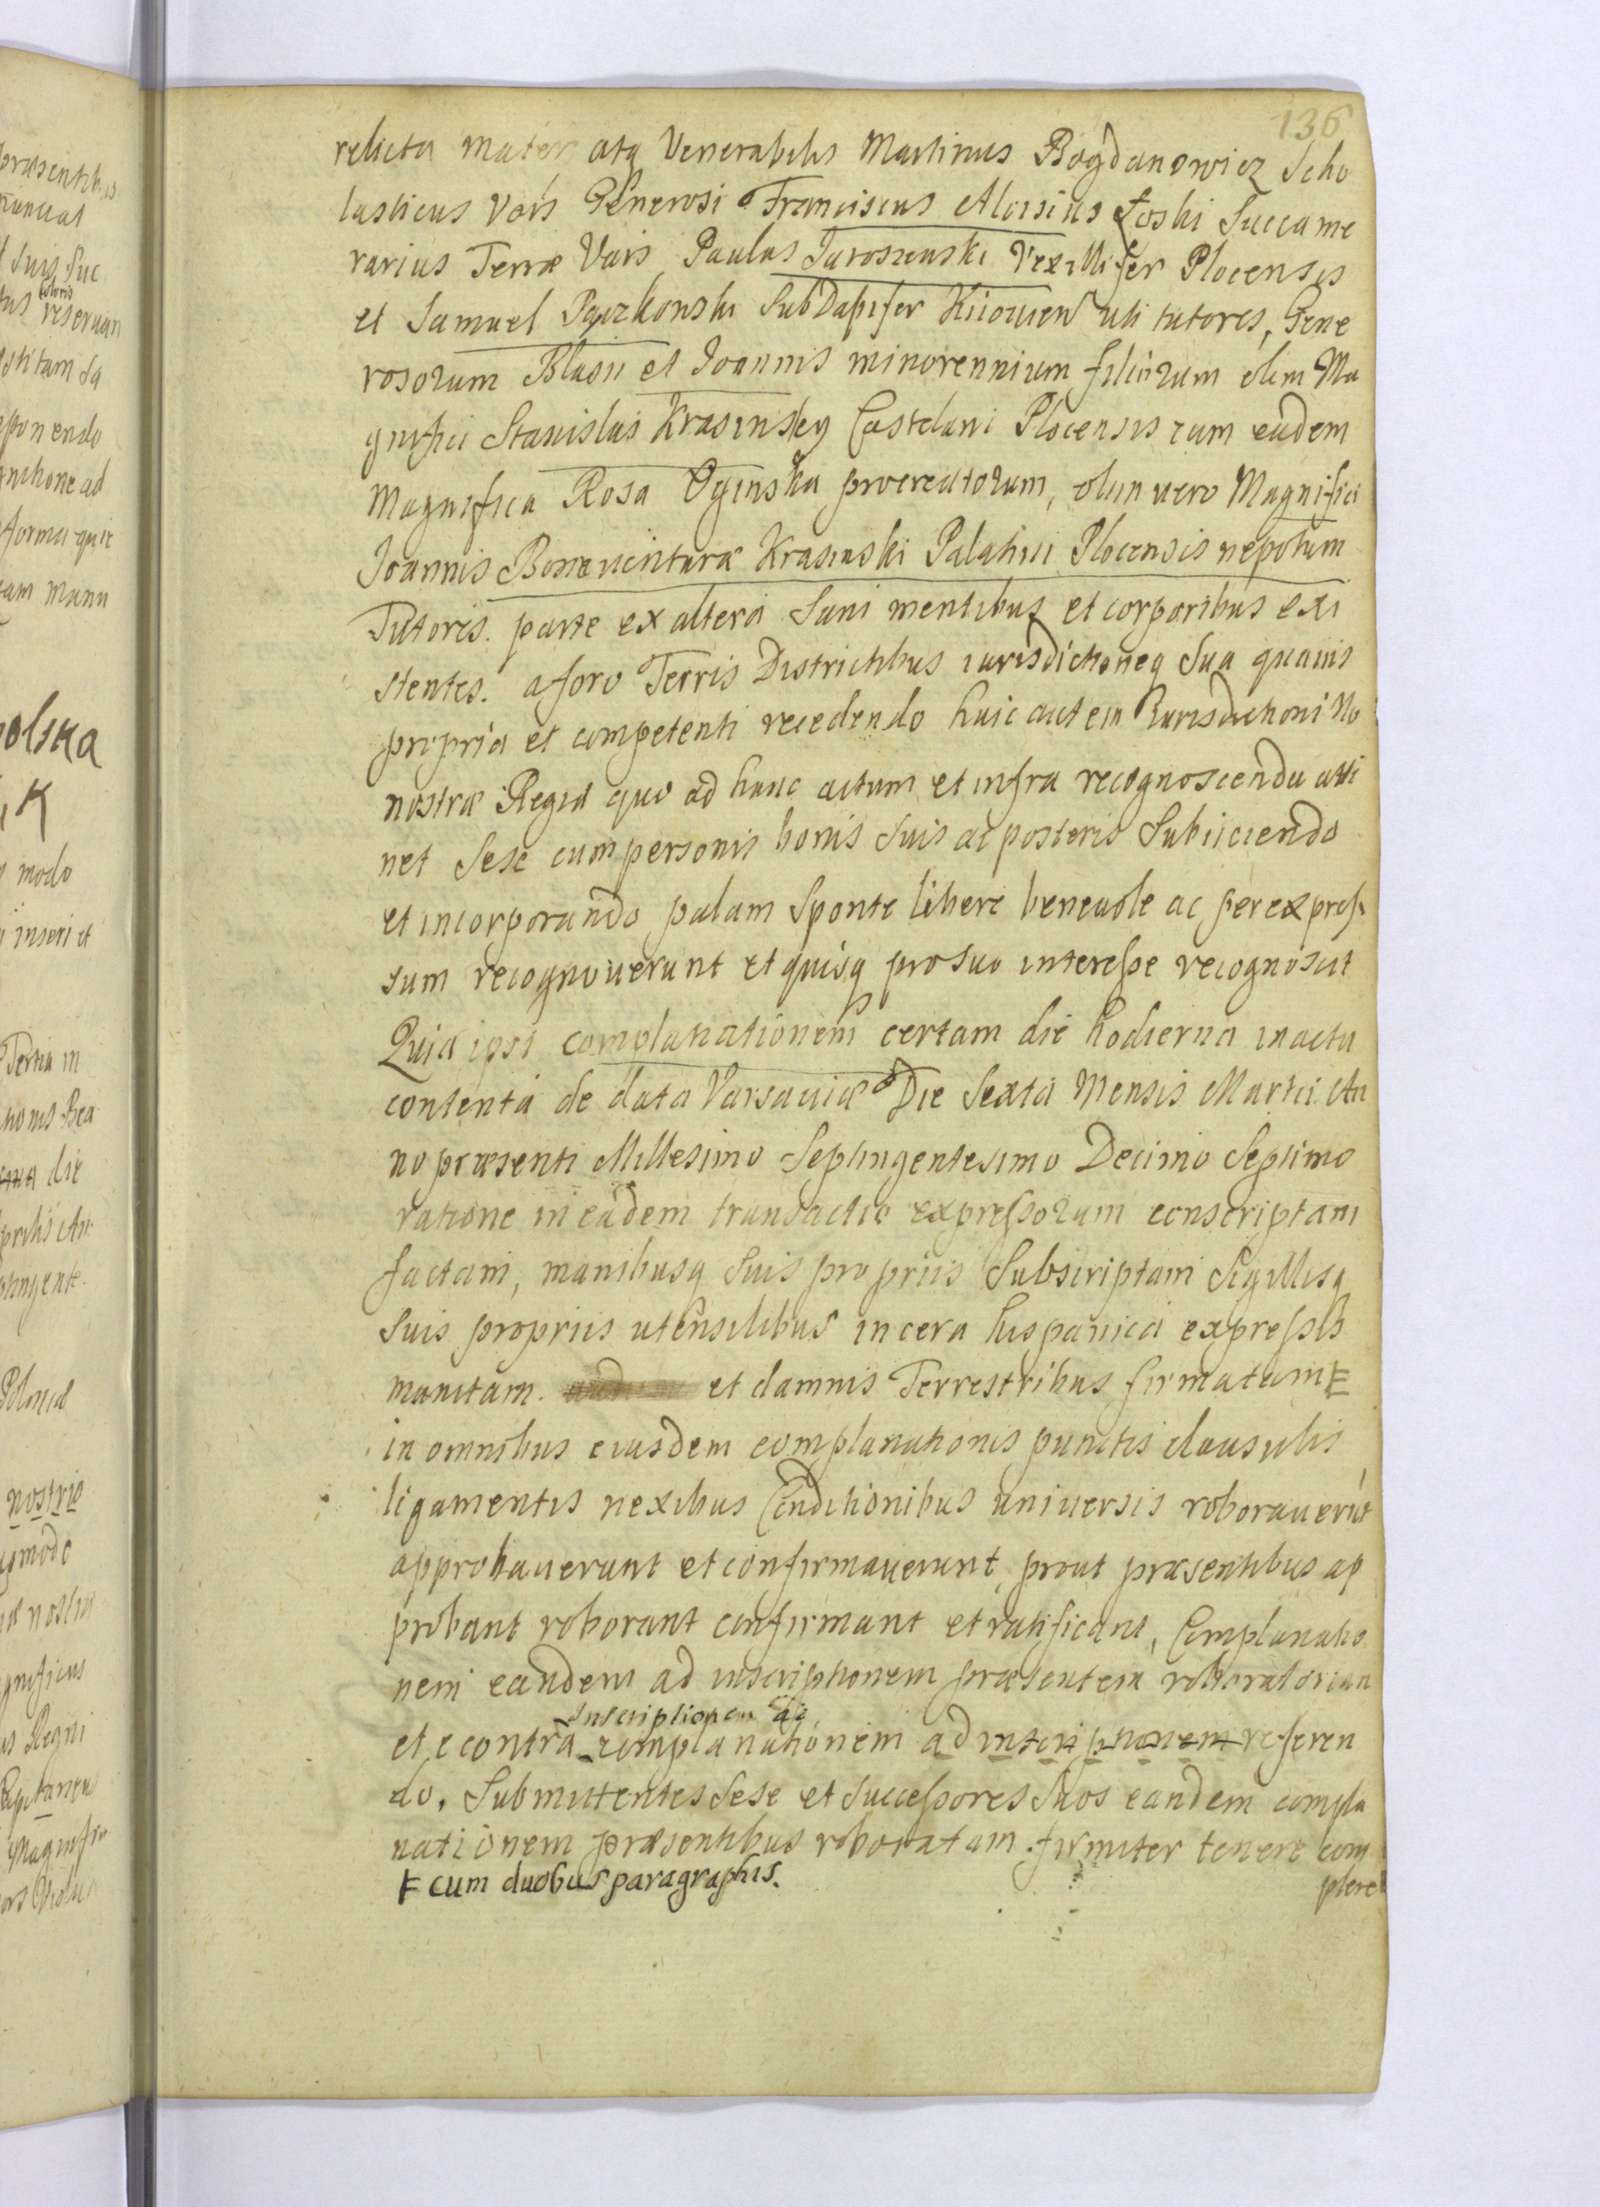 136
relicta mater atq Venerabilis Martinus Bogdanowicz Scho
lasticus Vars Generosi Franciscus Aloisius Łoski Succame
rarius Terræ Vars Paulus Jaroszenski Vexillifer Plocensis
et Samuel Pączkonski SubDapifer Kiiowien uti tutores, Gene
rosorum Blasii et Joannis minorennium filiorum olim Ma
gnifici Stanislai Krasinsky Castelani Plocensis cum eadem
Magnifica Rosa Oginska procreatorum, olim vero Magnifici
Joannis Bonaventuræ Krasinski Palatini Plocensis nepotum
Tutores. parte ex altera Sani mentibus et corporibus exi
stentes. a foro Terris Districtibus iurisdictioneq Sua quavis
propria et competenti recedendo huic autem Jurisdictioni No
nostræ Regiæ quo ad hunc actum et infra recognoscenda atti
net Sese cum personis bonis Suis ac posteris Subiiciendo
et incorporando palam Sponte libere benevole ac per expres
sum recognoverunt et quisq pro suo interesse recognoscit
Quia ipsi complanationem certam die hodierna in actu
contenta de data Varsaviæ Die Sexta Mensis Martii An
no præsenti Millesimo Septingentesimo Decimo Septimo
ratione in eadem transactio expressorum conscriptam
factam, manibusq Suis propriis Subscriptam Sigillisq
Suis propriis utensilibus in cera hispanica expressis
munitam. et damnis Terrestribus firmatam Ⱶ
in omnibus eiusdem complanationis punctis clausulis
ligamentis nexibus Conditionibus universis roboraverūt
approbaverunt et confirmaverunt, prout præsentibus ap
probant roborant confirmant et ratificant, Complanatio
nem eandem ad inscriptionem præsentem roboratoriam
Inscriptionem ad
et e contra complanationem ad inscriptionem referen
do, Submittentes Sese et Successores Suos eandem compla
nationem præsentibus roboratam firmiter tenere com
Ⱶ cum duobus paragraphis.
plere